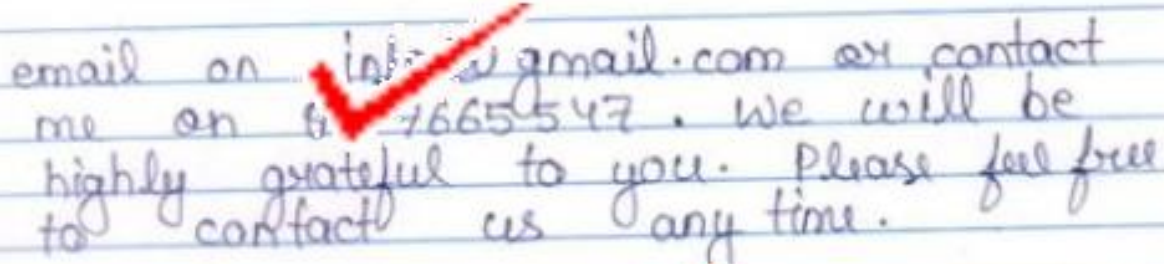 email on gmail.com or contact
me on 7665547. We will be
highly grateful to you. Please feel free
to contact us any time.